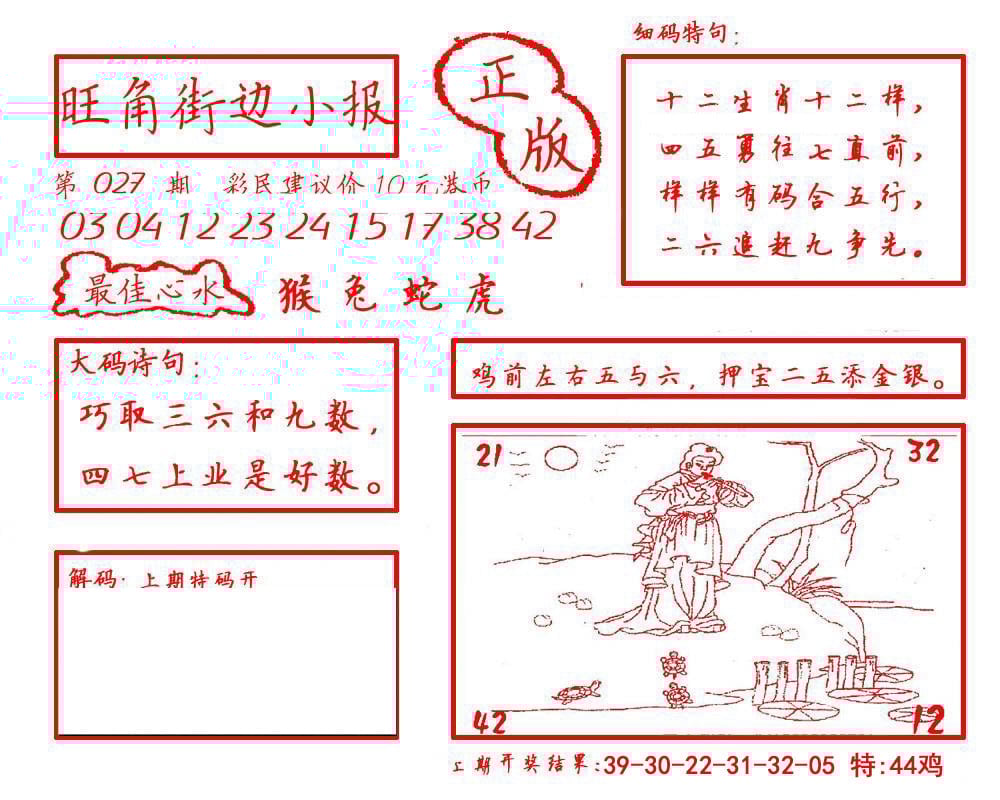 旺角街边小报
正版
第 027 期 彩民建议价 10 元港币
03 04 12 23 24 15 17 38 42
最佳心水 猴兔蛇虎
细码特句:
十二生肖十二样,
四五勇往七直前,
样样有码合五行,
二六追赶九争先。
大码诗句:
巧取三六和九数,
四七上业是好数。
鸡前左右五与六,押宝二五添金银。
21
32
42
12
解码·上期特码开
上期开奖结果:39-30-22-31-32-05 特:44鸡